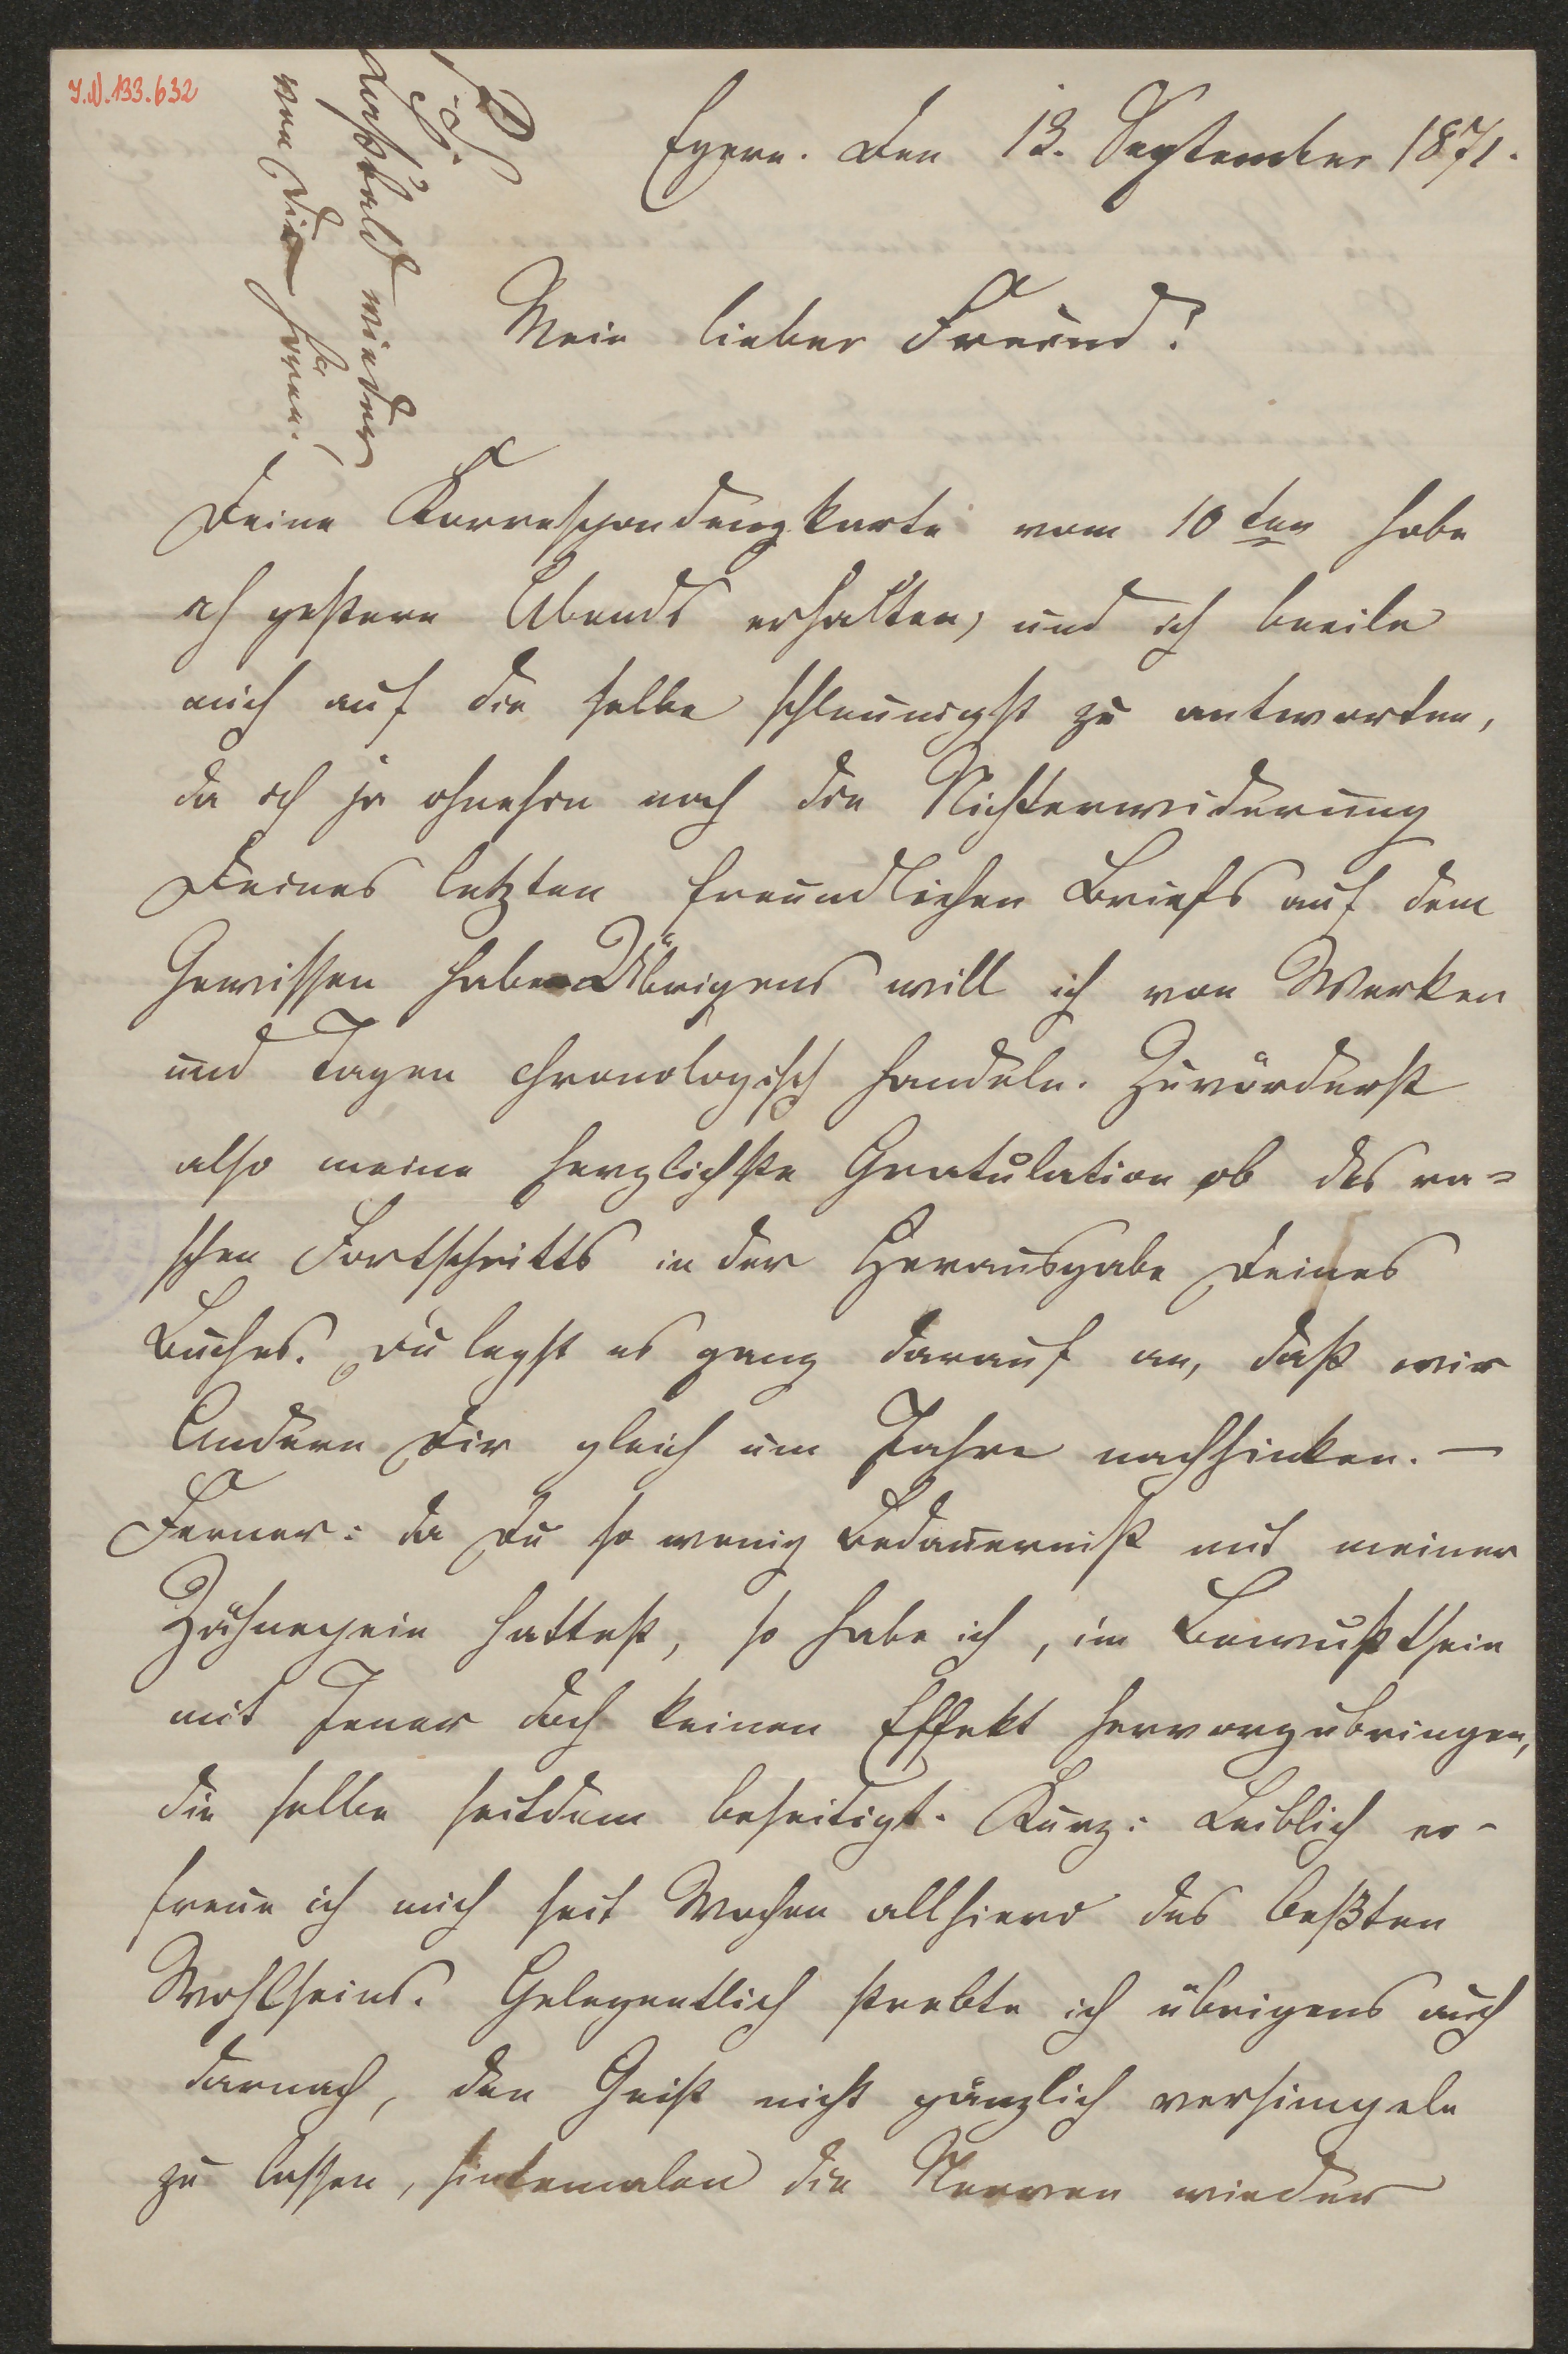 I.N. 133.632
P.S.
Laß bald wieder
von Dir hören.
Egern. den 13. September 1871.
Mein lieber Freund!
Deine Korrespondenzkarte vom 10ten habe
ich gestern Abends erhalten, und ich beeile
mich auf die selbe schleunigst zu antworten,
da ich ja ohnehin noch die Nichterwiderung
Deines letzten freundlichen Briefs auf dem
Gewissen habe. Übrigens will ich von Werken
und Tagen chronologisch handeln. Zuvörderst
also meine herzlichste Gratulation ob des ra-
schen Fortschritts in der Herausgabe Deines
Buches. Du legst es ganz darauf an, daß wir
Andern Dir gleich um Jahre nachhinken. —
Ferner: da Du so wenig Bedauerniß mit meiner
Zähnepein hattest, so habe ich, im Bewußtsein
mit Jener doch keinen Effekt hervorzubringen,
die selbe seitdem beseitigt. Kurz: Leiblich er-
freue ich mich seit Wochen allhiero des beßten
Wohlseins. Gelegentlich strebte ich übrigens auch
darnach, den Geist nicht gänzlich versimpeln
zu lassen, sintemalen die Nerven wieder